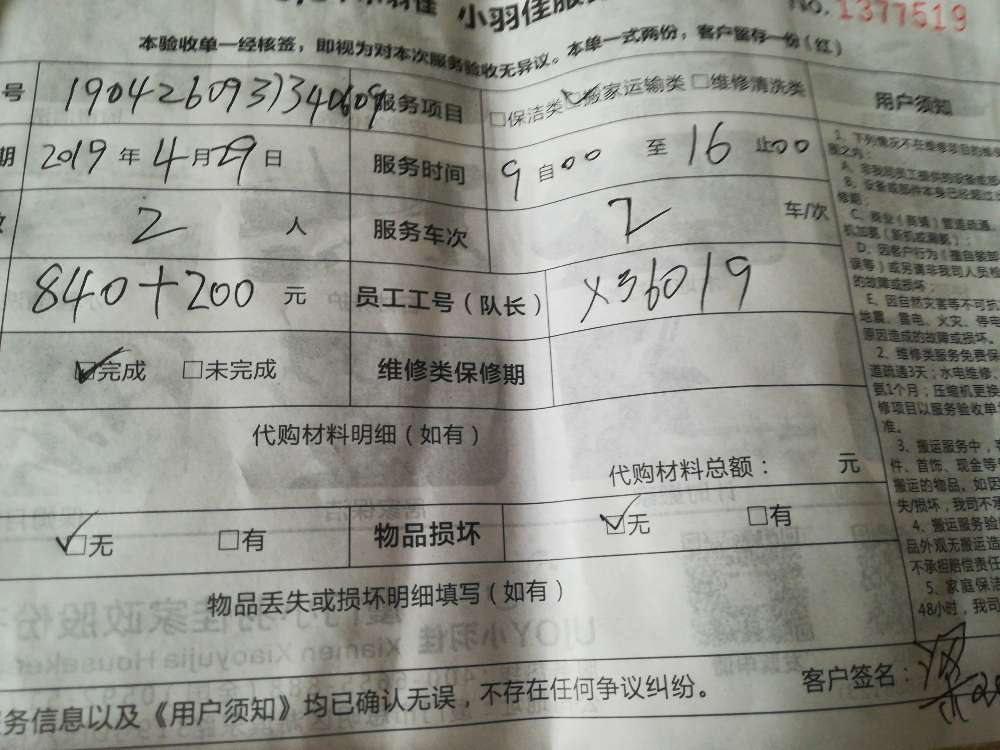 小羽佳 小羽佳服
No.1377519
本验收单一经核签，即视为对本次服务验收无异议。本单一式两份，客户留存一份(红)
号 服务项目 □保洁类 ☑搬家运输类 □维修清洗类 用户须知
2019年4月29日 服务时间 9自00 至 16止00
2 人 服务车次 2 车/次
840+200 元 员工工号（队长） X36019
☑完成 □未完成 维修类保修期
代购材料明细（如有）
代购材料总额： 元
☑无 □有 物品损坏 ☑无 □有
物品丢失或损坏明细填写（如有）
务信息以及《用户须知》均已确认无误，不存在任何争议纠纷。 客户签名：
1、下列情况不在维修项目的维保
围之内：
A、非我司员工提供的设备或
B、设备或部件本身已经超过
修期；
C、商业（商铺）管道疏通、
D、因客户行为（擅自装卸
误等）或另请非我司人员
的故障或损坏；
E、因自然灾害等不可抗
地震、雷电、火灾、停电
原因造成的故障或损坏。
2、维修类服务免费保
道疏通3天；水电维修、
氨1个月；压缩机更换
修项目以服务验收单
准。
3、搬运服务中，
件、首饰、现金等
搬运的物品，如因
失/损坏，我司不承
4、搬运服务验
品外观无搬运造
不承担赔偿责任
5、家庭保洁
48小时，我司